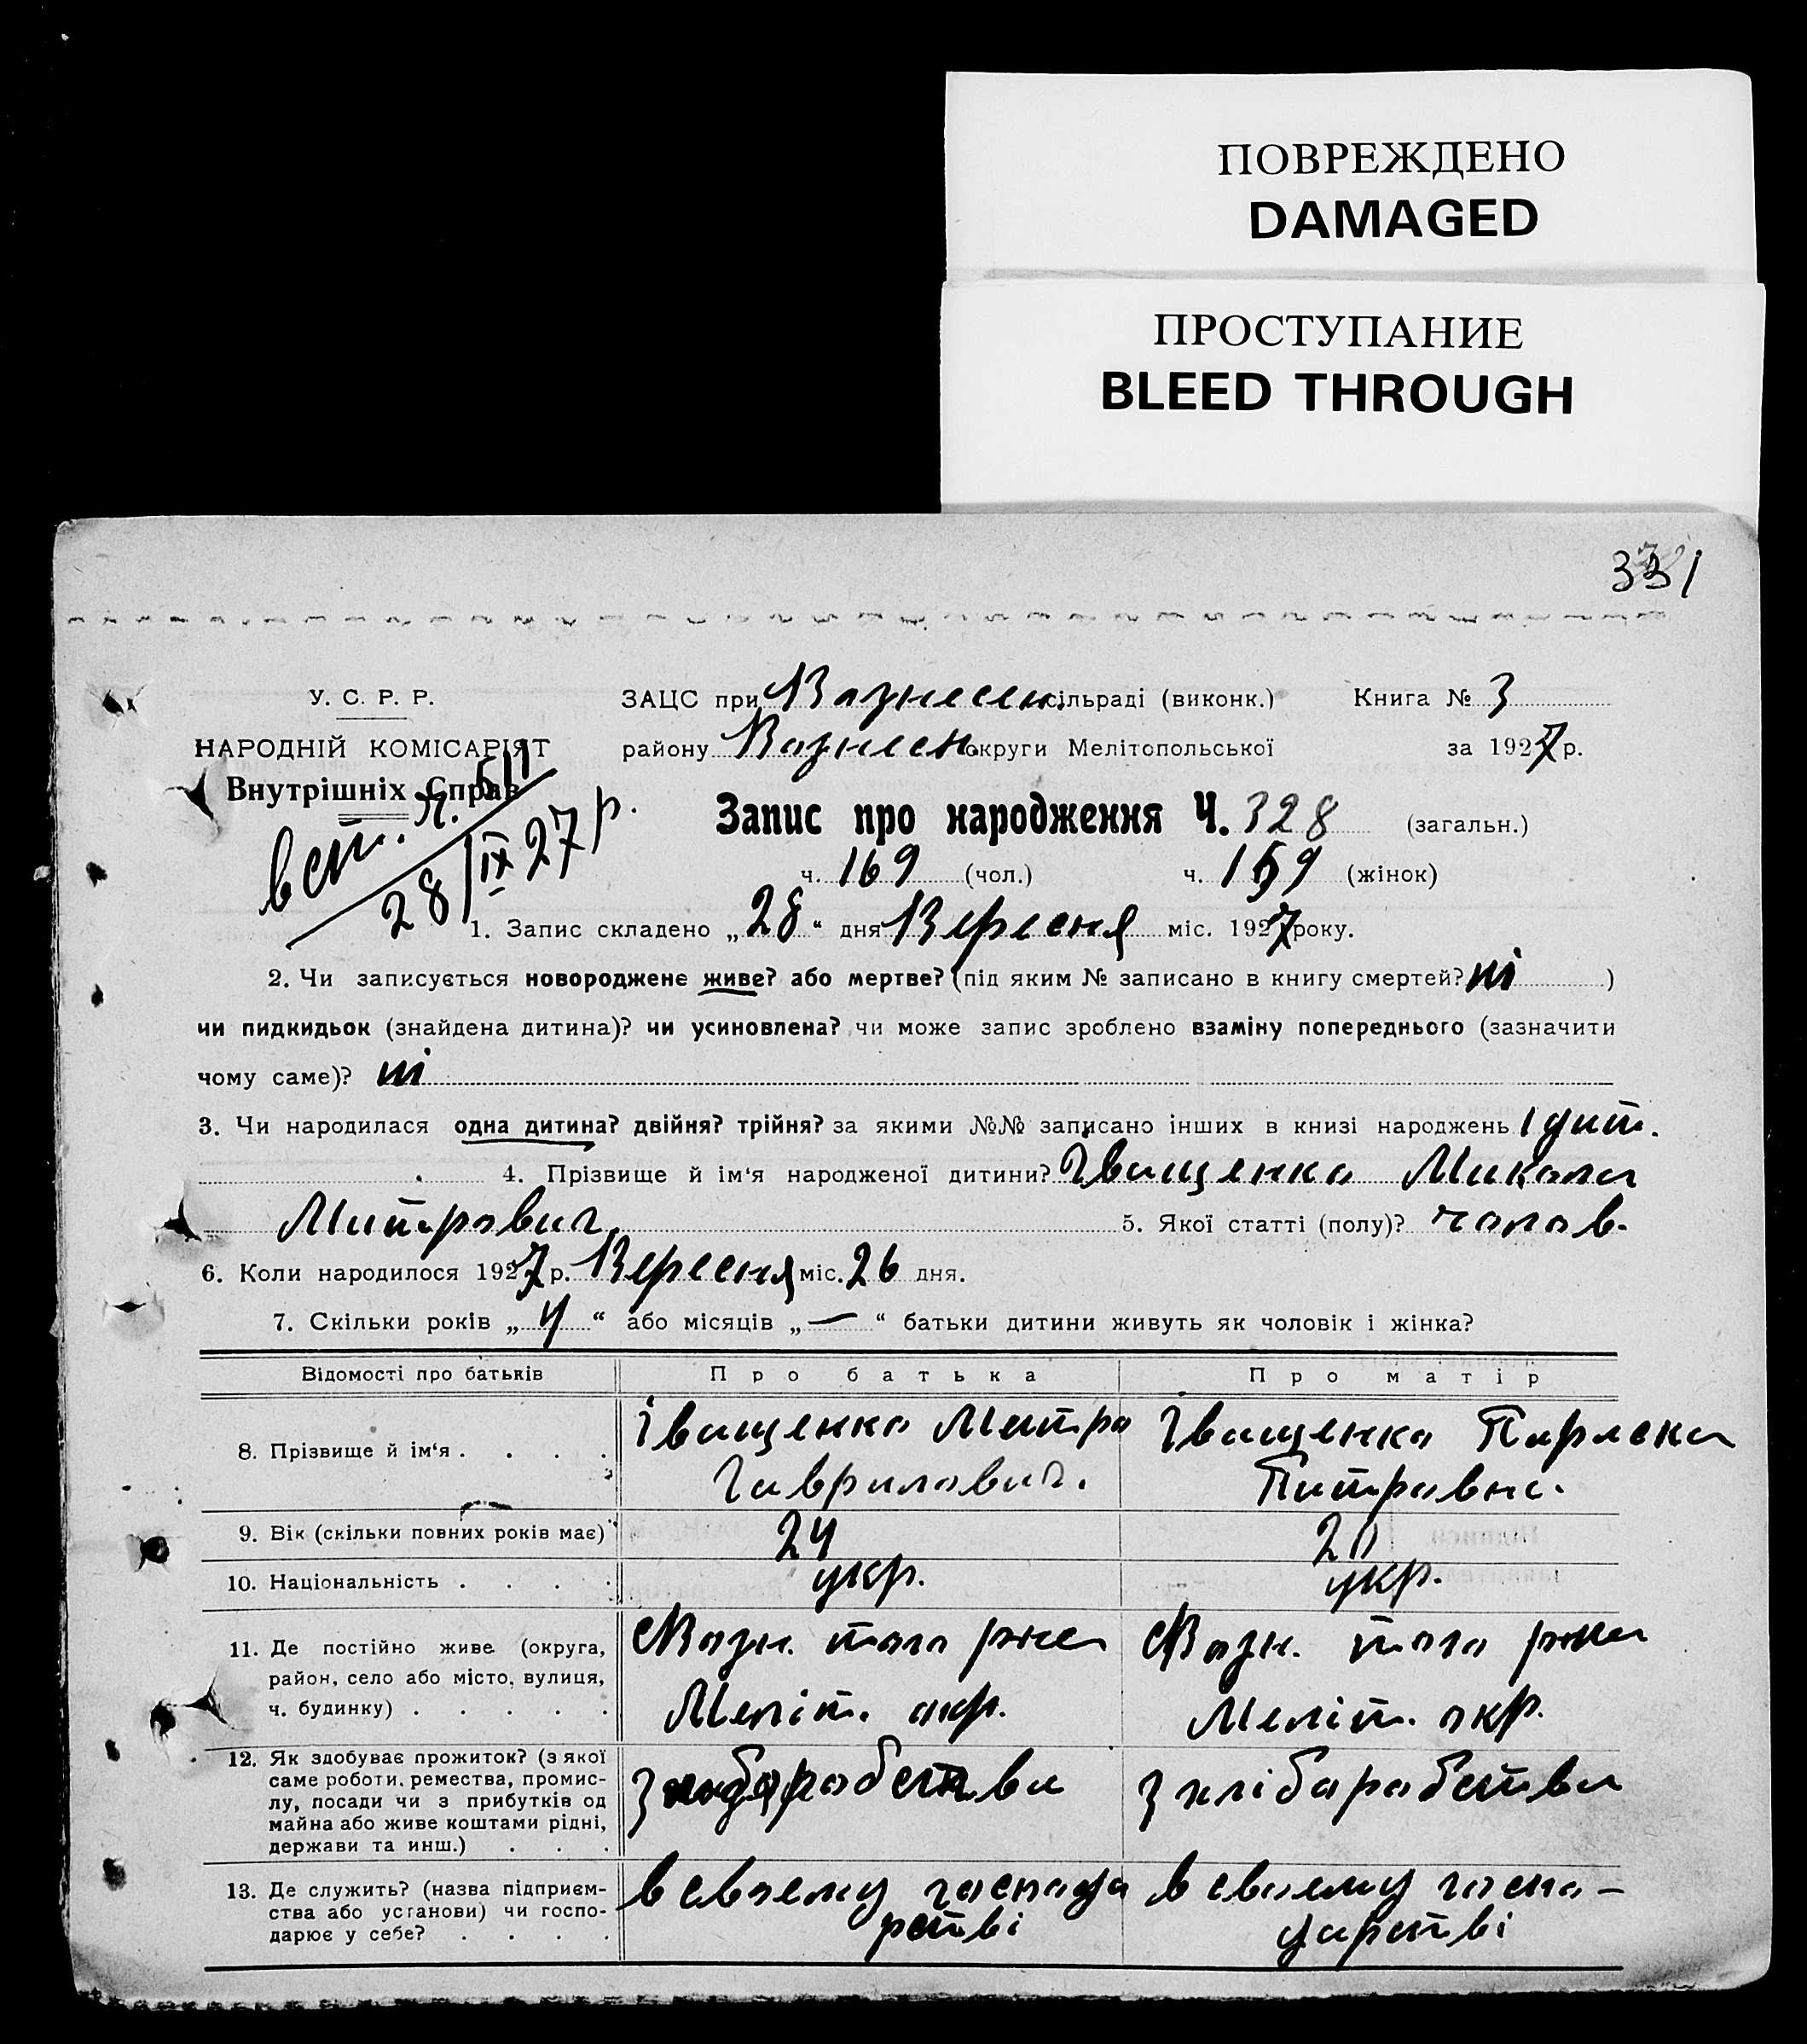 ПОВРЕЖДЕНО
DAMAGED
ПРОСТУПАНИЕ
BLEED THROUGH
331
У. С. Р. Р.
НАРОДНІЙ КОМІСАРІЯТ
Внутрішніх Справ
28/IX 27 р.
ЗАЦС при Вознесен. сільраді (виконк.) Книга № 3
району Вознесен. округи Мелітопольської за 1927 р.
Запис про народження Ч. 328 (загальн.)
ч. 169 (чол.) ч. 159 (жінок)
1. Запис складено „28“ дня Вересня міс. 1927 року.
2. Чи записується новороджене живе? або мертве? (під яким № записано в книгу смертей? ні )
чи пидкидьок (знайдена дитина)? чи усиновлена? чи може запис зроблено взаміну попереднього (зазначити
чому саме)? ні
3. Чи народилася одна дитина? двійня? трійня? за якими №№ записано інших в книзі народжень 1 дит.
4. Прізвище й ім‘я народженої дитини? Іващенко Микола
Митрович 5. Якої статті (полу)? чолов.
6. Коли народилося 1927 р. Вересня міс. 26 дня.
7. Скільки років „4“ або місяців „—“ батьки дитини живуть як чоловік і жінка?
Відомості про батьків Про батька Про матір
8. Прізвище й ім‘я . . . . Іващенко Митро Іващенко Параска
Гаврилович. Питровна.
9. Вік (скільки повних років має) 24 20
10. Національність . . . . укр. укр.
11. Де постійно живе (округа, район, село або місто, вулиця, ч. будинку) . . . . . Возн. того рна Возн. того рна
Меліт. окр. Меліт. окр.
12. Як здобуває прожиток? (з якої саме роботи, ремества, промислу, посади чи з прибутків од майна або живе коштами рідні, держави та инш.) . . . з хліборобства
13. Де служить? (назва підприємства або установи) чи господарює у себе? . . . . в своему господа в своему госпо-
рстві дарстві